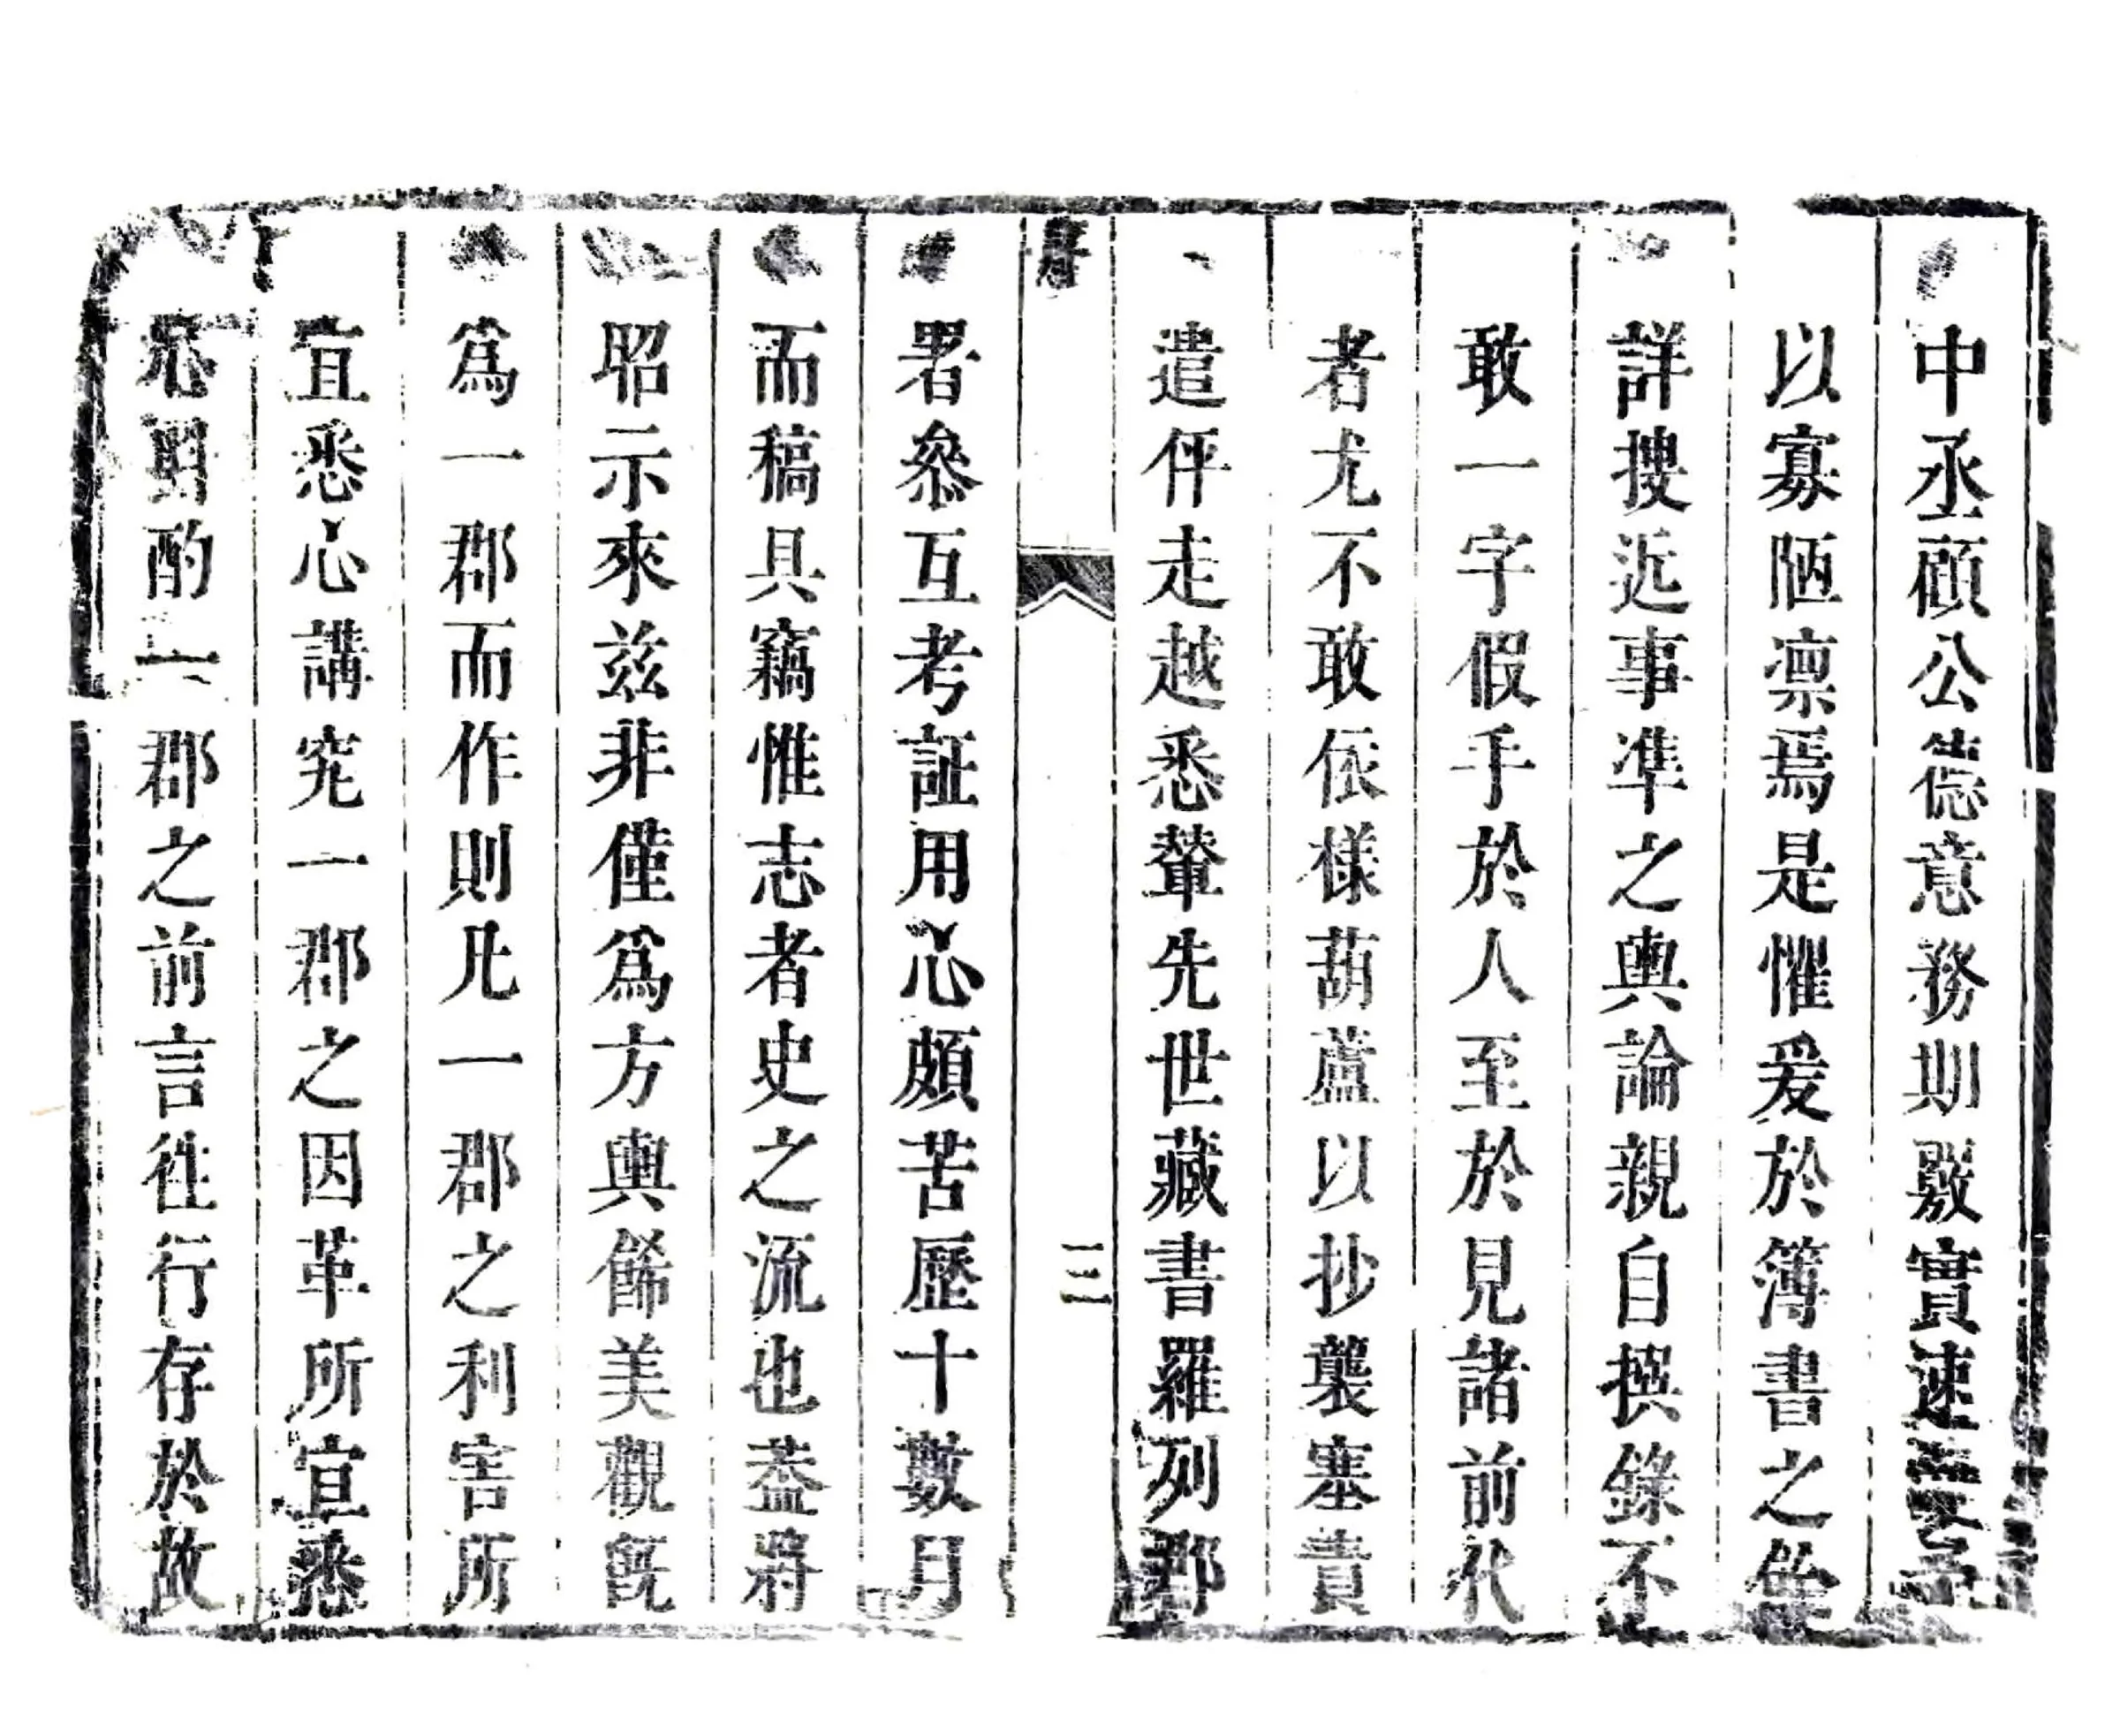 中丞顧公德意務期覈實速
以寡陋凛焉是懼爰於簿書之
詳搜近事凖之輿論親自撰錄不
敢一字假手於人至於見諸前代
者尤不敢依樣葫蘆以抄襲塞責
遣伻走越悉輦先世藏書羅列郡
三
署叅互考証用心頗苦歷十數月
而稿具竊惟志者史之流也葢將
昭示來兹非僅爲方輿餙美觀旣
爲一郡而作則凡一郡之利害所
宜悉心講究一郡之因革所宜悉
酌一郡之前言徃行存於故